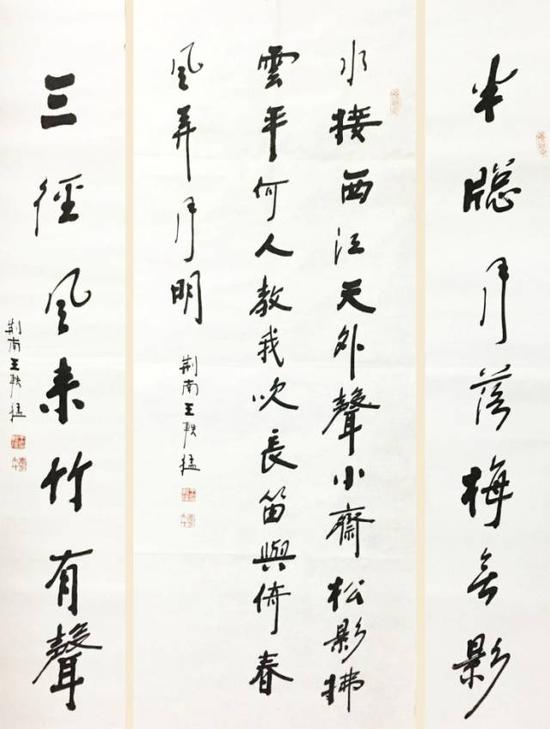 半牕月落梅無影
水接西江天外聲小齋松影拂
雲平何人教我吹長笛與倚春
風弄月明
荆南王軼猛
三徑風来竹有聲
荆南王軼猛